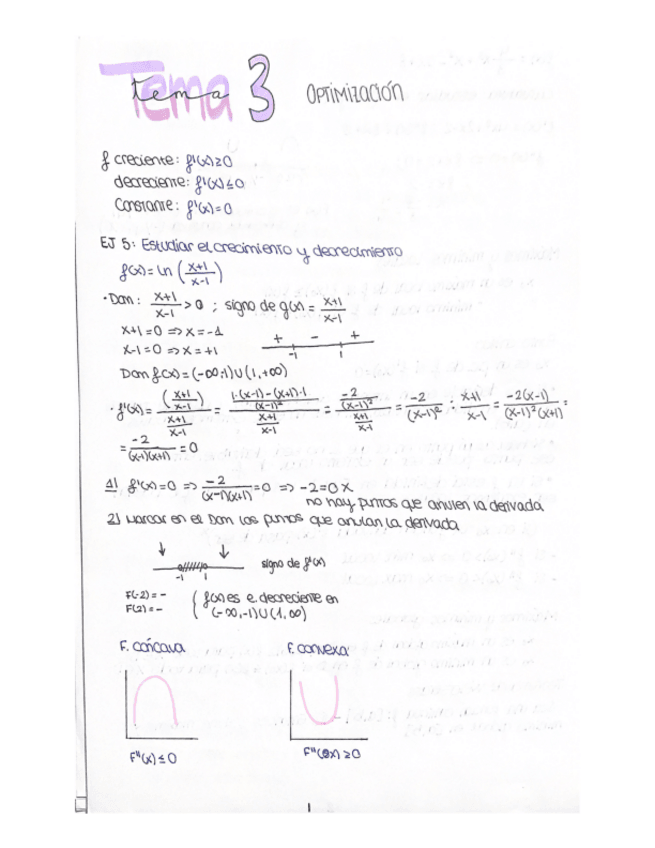 Tema 3 OPTIMIZACIÓN
f creciente: f'(x)≥0
decreciente: f'(x)≤0
Constante: f'(x)=0
EJ 5: Estudiar el crecimiento y decrecimiento
f(x)=ln((x+1)/(x-1))
· Dom: (x+1)/(x-1) > 0 ; signo de g(x) = (x+1)/(x-1)
x+1=0 => x=-1
x-1=0 => x=+1
+ - +
-1 1
Dom f(x)=(-∞,-1)∪(1,+∞)
· f'(x) = ((x+1)/(x-1))' / ((x+1)/(x-1)) = ((1·(x-1)-(x+1)·1)/(x-1)²) / ((x+1)/(x-1)) = (-2/(x-1)²) / ((x+1)/(x-1)) = -2/(x-1)² : (x+1)/(x-1) = -2(x-1)/((x-1)²(x+1)) =
= -2/((x-1)(x+1)) = 0
1) f'(x)=0 => -2/((x-1)(x+1)) =0 => -2=0 X
no hay puntos que anulen la derivada
2) Marcar en el Dom los puntos que anulan la derivada
-1 1
signo de f'(x)
F(-2) = -
F(2) = -
{ f(x) es e. decreciente en
(-∞,-1)∪(1,∞)
F. cóncava F. convexa
F"(x) ≤ 0 F"(x) ≥ 0
1